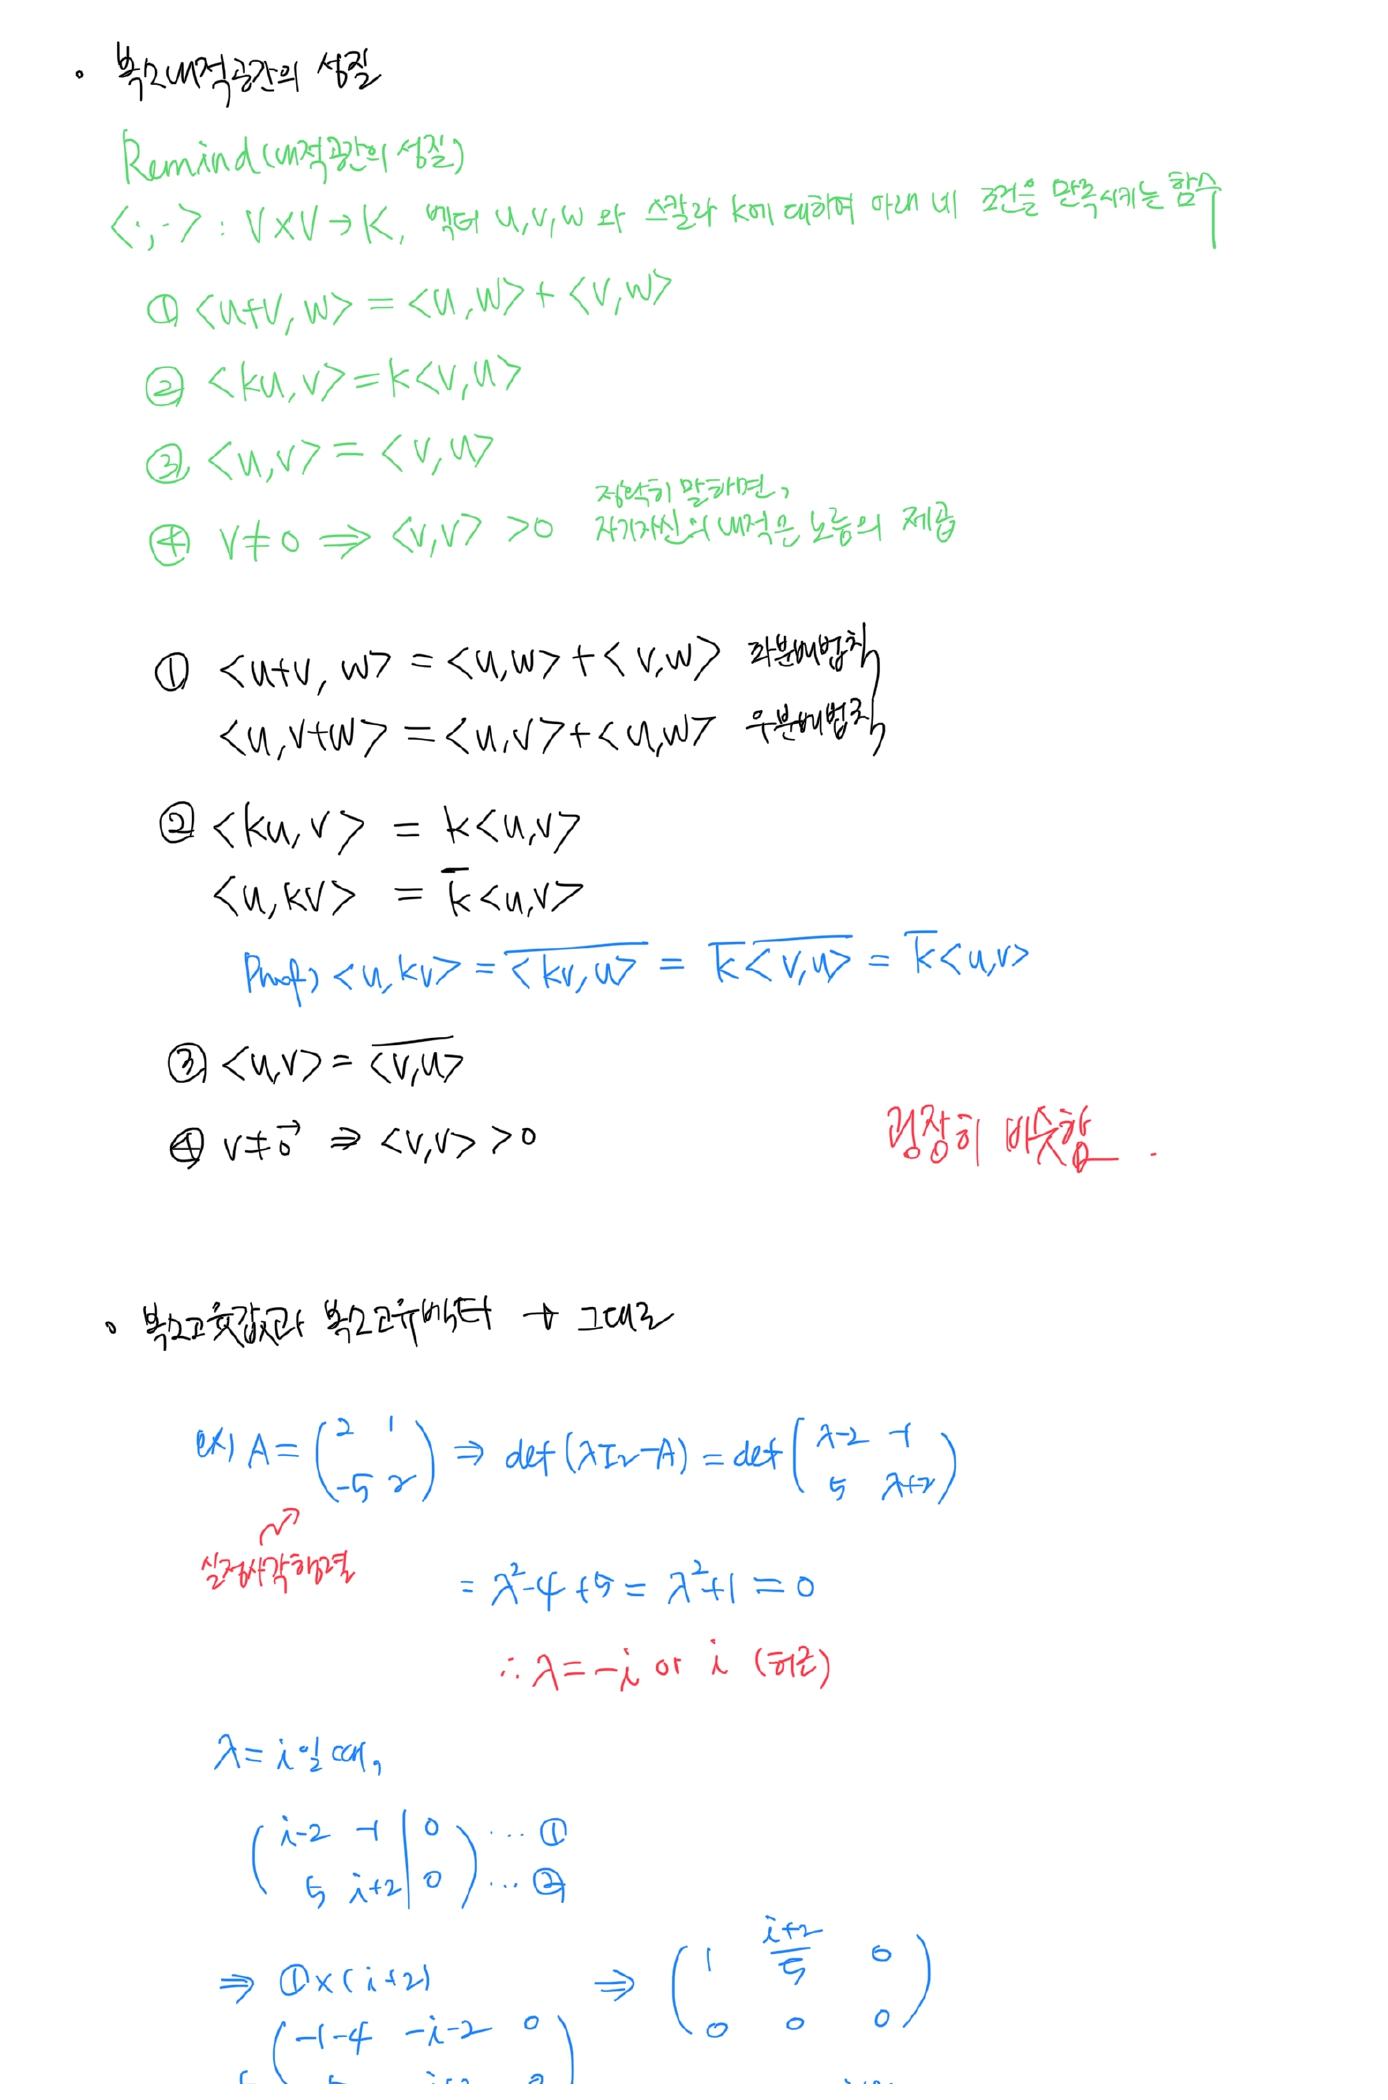 • 복소내적공간의 성질
Remind(내적공간의 성질)
<·,·> : V×V→K, 벡터 u,v,w 와 스칼라 k에 대하여 아래 네 조건을 만족시키는 함수
① <u+v, w> = <u,w> + <v,w>
② <ku,v> = k<v,u>
③ <u,v> = <v,u>
④ v≠0 ⇒ <v,v> >0 정확히 말하면,
자기자신의 내적은 노름의 제곱
① <u+v, w> = <u,w> + <v,w> 좌분배법칙
<u,v+w> = <u,v> + <u,w> 우분배법칙
② <ku,v> = k<u,v>
<u,kv> = k̅<u,v>
Proof) <u,kv> = \overline{<kv,u>} = k̅ \overline{<v,u>} = k̅<u,v>
③ <u,v> = \overline{<v,u>}
④ v≠0⃗ ⇒ <v,v> >0
굉장히 비슷함.
• 복소고윳값과 복소고유벡터 → 그대로
ex) A = (2 1 ; -5 2) ⇒ det(λI₂-A) = det(λ-2 -1 ; 5 λ+2)
실정사각행렬
= λ²-4+5 = λ²+1 = 0
∴ λ = -i or i (허근)
λ = i일 때,
( i-2 -1 | 0 ) ... ①
( 5 i+2 | 0 ) ... ②
⇒ ①×(i+2) ⇒ ( 1 \frac{i+2}{5} 0 ; 0 0 0 )
( -1-4 -i-2 0 )